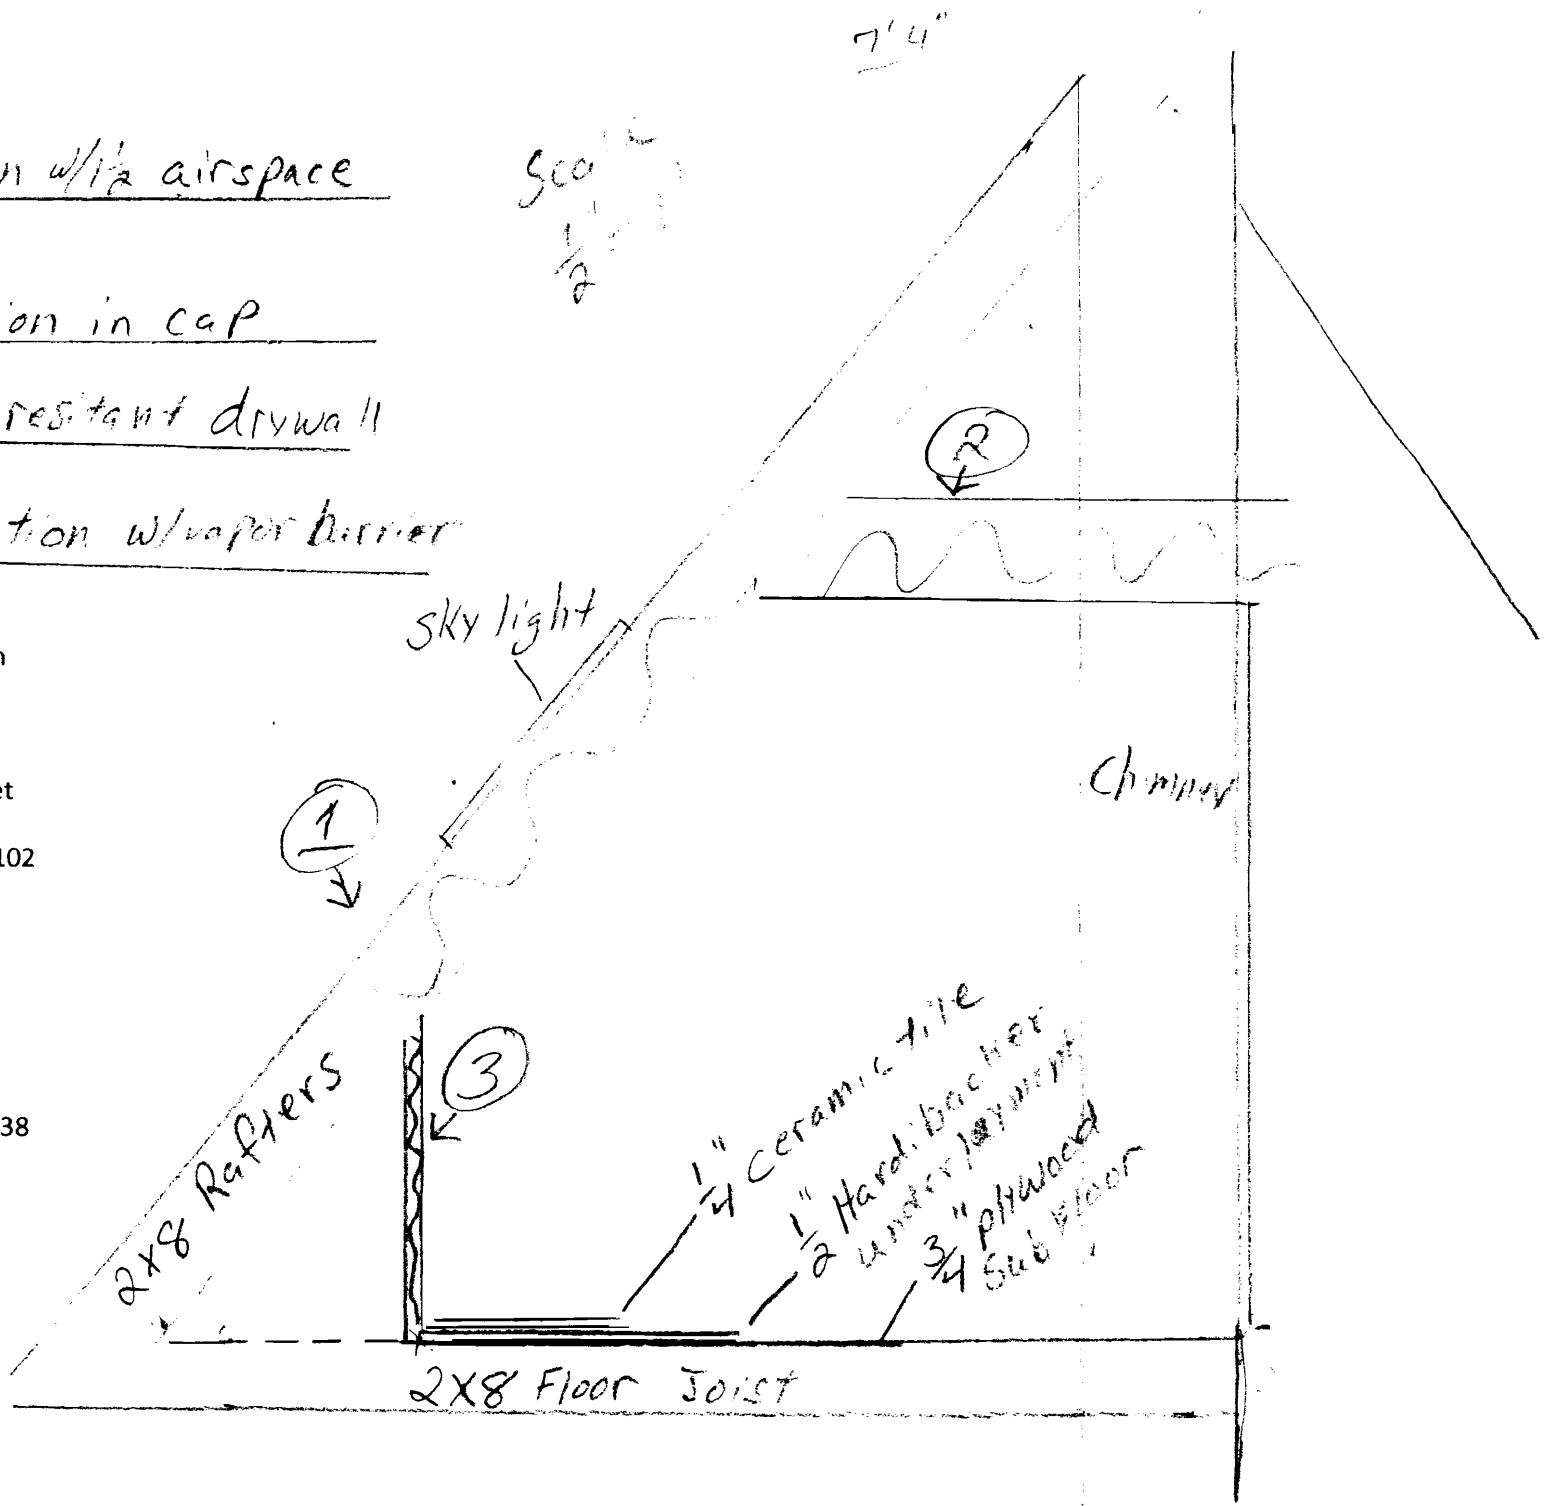 7' 4"
n w/1½ airspace
1/2
on in cap
resitant drywall
tion w/vapor barrier
sky light
n
et
102
38
2
1
3
Chimney
2x8 Rafters
1/4" ceramic tile
1/2" Hardibacker
underlayment
3/4" plywood
Sub Floor
2x8 Floor Joist